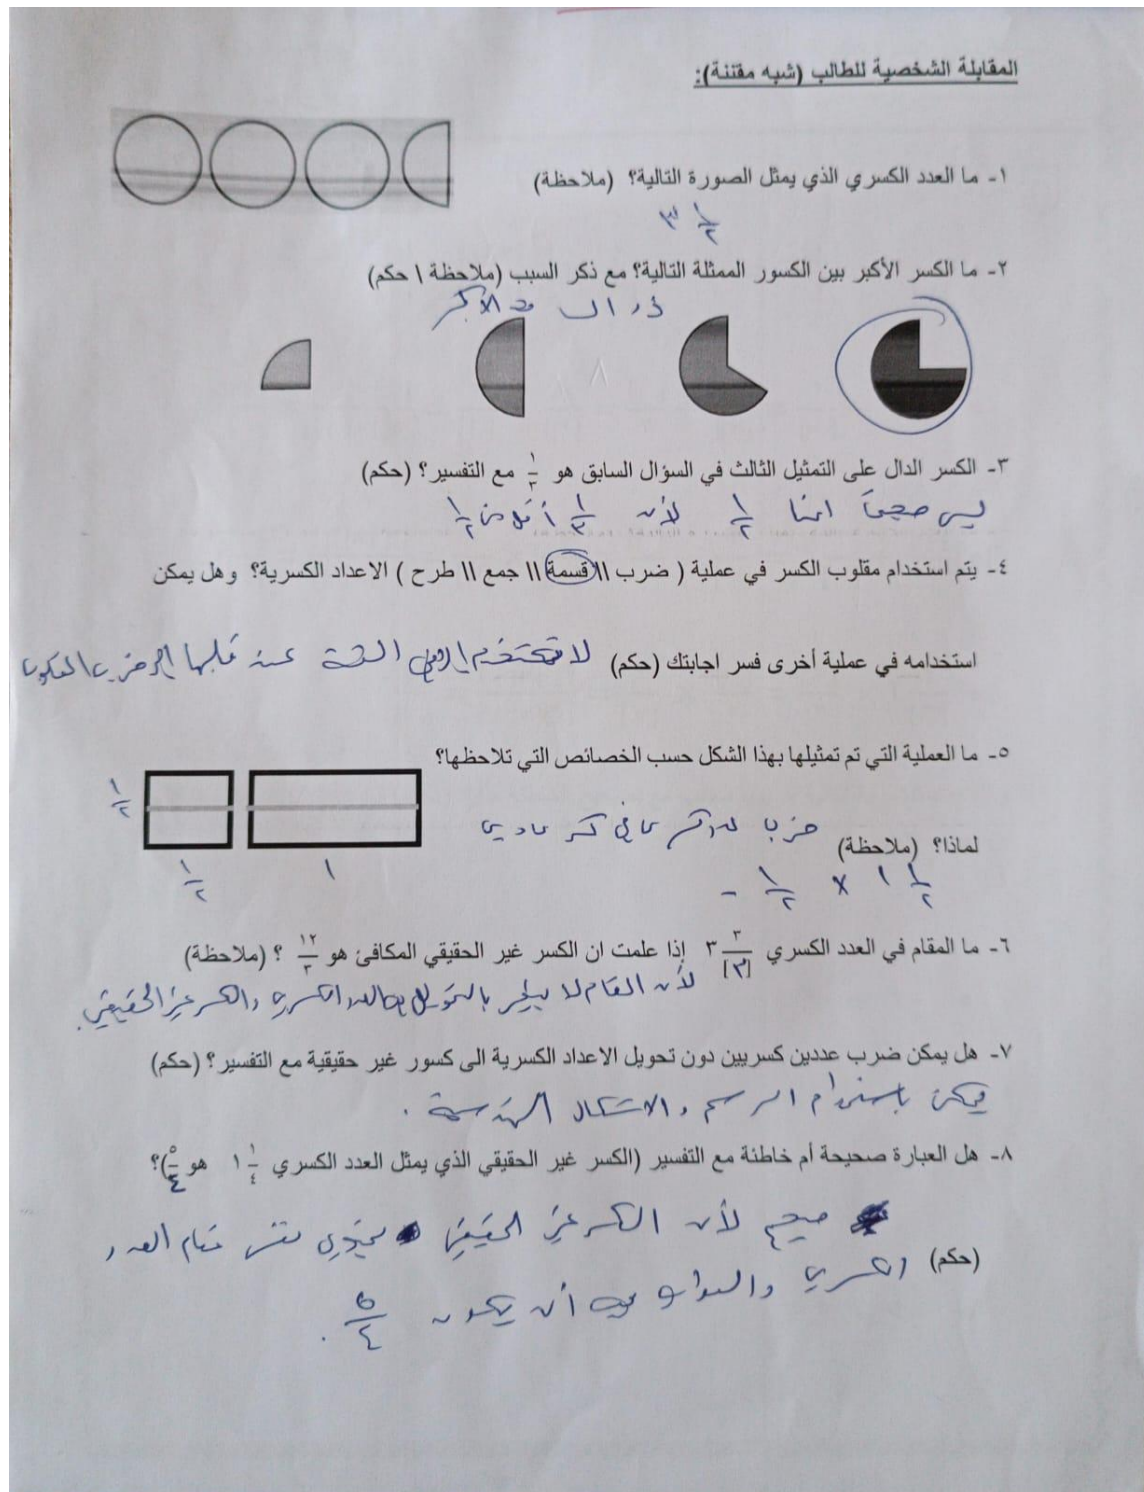 المقابلة الشخصية للطالب (شبه مقتنة):
١- ما العدد الكسري الذي يمثل الصورة التالية؟ (ملاحظة)
٣ ١/٢
٢- ما الكسر الأكبر بين الكسور الممثلة التالية؟ مع ذكر السبب (ملاحظة \ حكم)
الأكبر
٣- الكسر الدال على التمثيل الثالث في السؤال السابق هو ١/٣ مع التفسير؟ (حكم)
ليس صحيحاً انما ١/٢ لأن ١/٣ أقل من ١/٢
٤- يتم استخدام مقلوب الكسر في عملية ( ضرب \\ قسمة \\ جمع \\ طرح ) الاعداد الكسرية؟ وهل يمكن
استخدامه في عملية أخرى فسر اجابتك (حكم) لا تستخدم القسمة عند قلبها ضرب
٥- ما العملية التي تم تمثيلها بهذا الشكل حسب الخصائص التي تلاحظها؟
١/٢
لماذا؟ (ملاحظة) ضرب عدد كسري في كسر عادي
١/٢ ١
١ ١/٢ × ١/٢ -
٦- ما المقام في العدد الكسري ٣ ٣/[٣] إذا علمت ان الكسر غير الحقيقي المكافئ هو ١٢/٣ ؟ (ملاحظة)
لأن المقام لا يتغير بالتحويل العدد الكسري والكسر غير الحقيقي.
٧- هل يمكن ضرب عددين كسريين دون تحويل الاعداد الكسرية الى كسور غير حقيقية مع التفسير؟ (حكم)
يمكن باستخدام الرسم والاشكال الهندسية .
٨- هل العبارة صحيحة أم خاطئة مع التفسير (الكسر غير الحقيقي الذي يمثل العدد الكسري ١ ١/٤ هو ٥/٤)؟
صحيح لأن الكسر غير الحقيقي يحوي نفس مقام العدد
(حكم) الكسري أن يكون ٥/٤ .